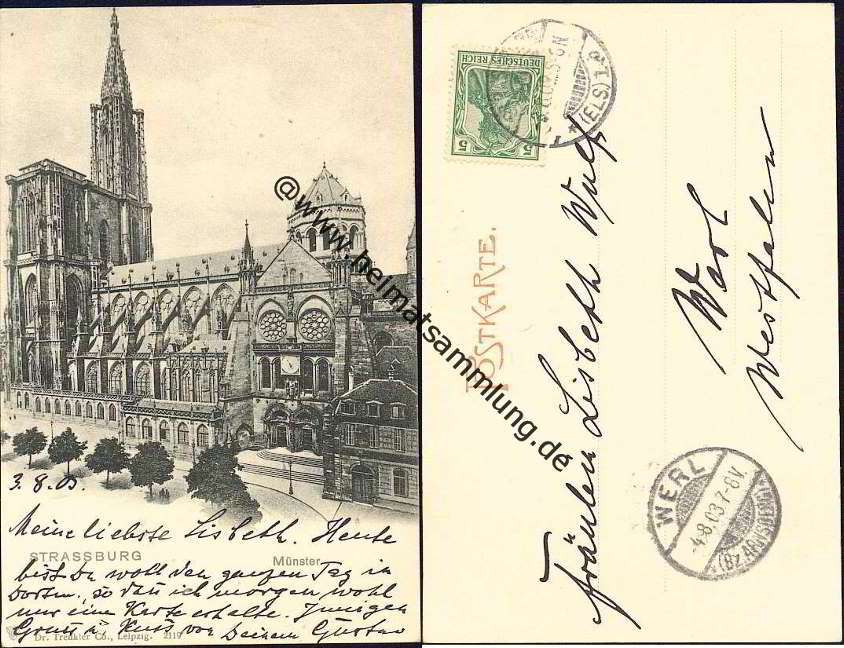 3.8.03.
Meine liebste Lisbeth. Heute
STRASSBURG
Münster
bist Du wohl den ganzen Tag in
Dortm., so daß ich morgen wohl
nur eine Karte erhalte. Innigen
Gruss u. Kuss von Deinem Gustav
Dr. Trenkler Co., Leipzig. 2119
@www.heimatsammlung.de
DEUTSCHES REICH
5 5
(ELS) 1
POSTKARTE.
Fräulein Lisbeth Wulf
Werl
Westfalen
WERL
4.8.03.7-8V.
(Bz. ARNSBERG)